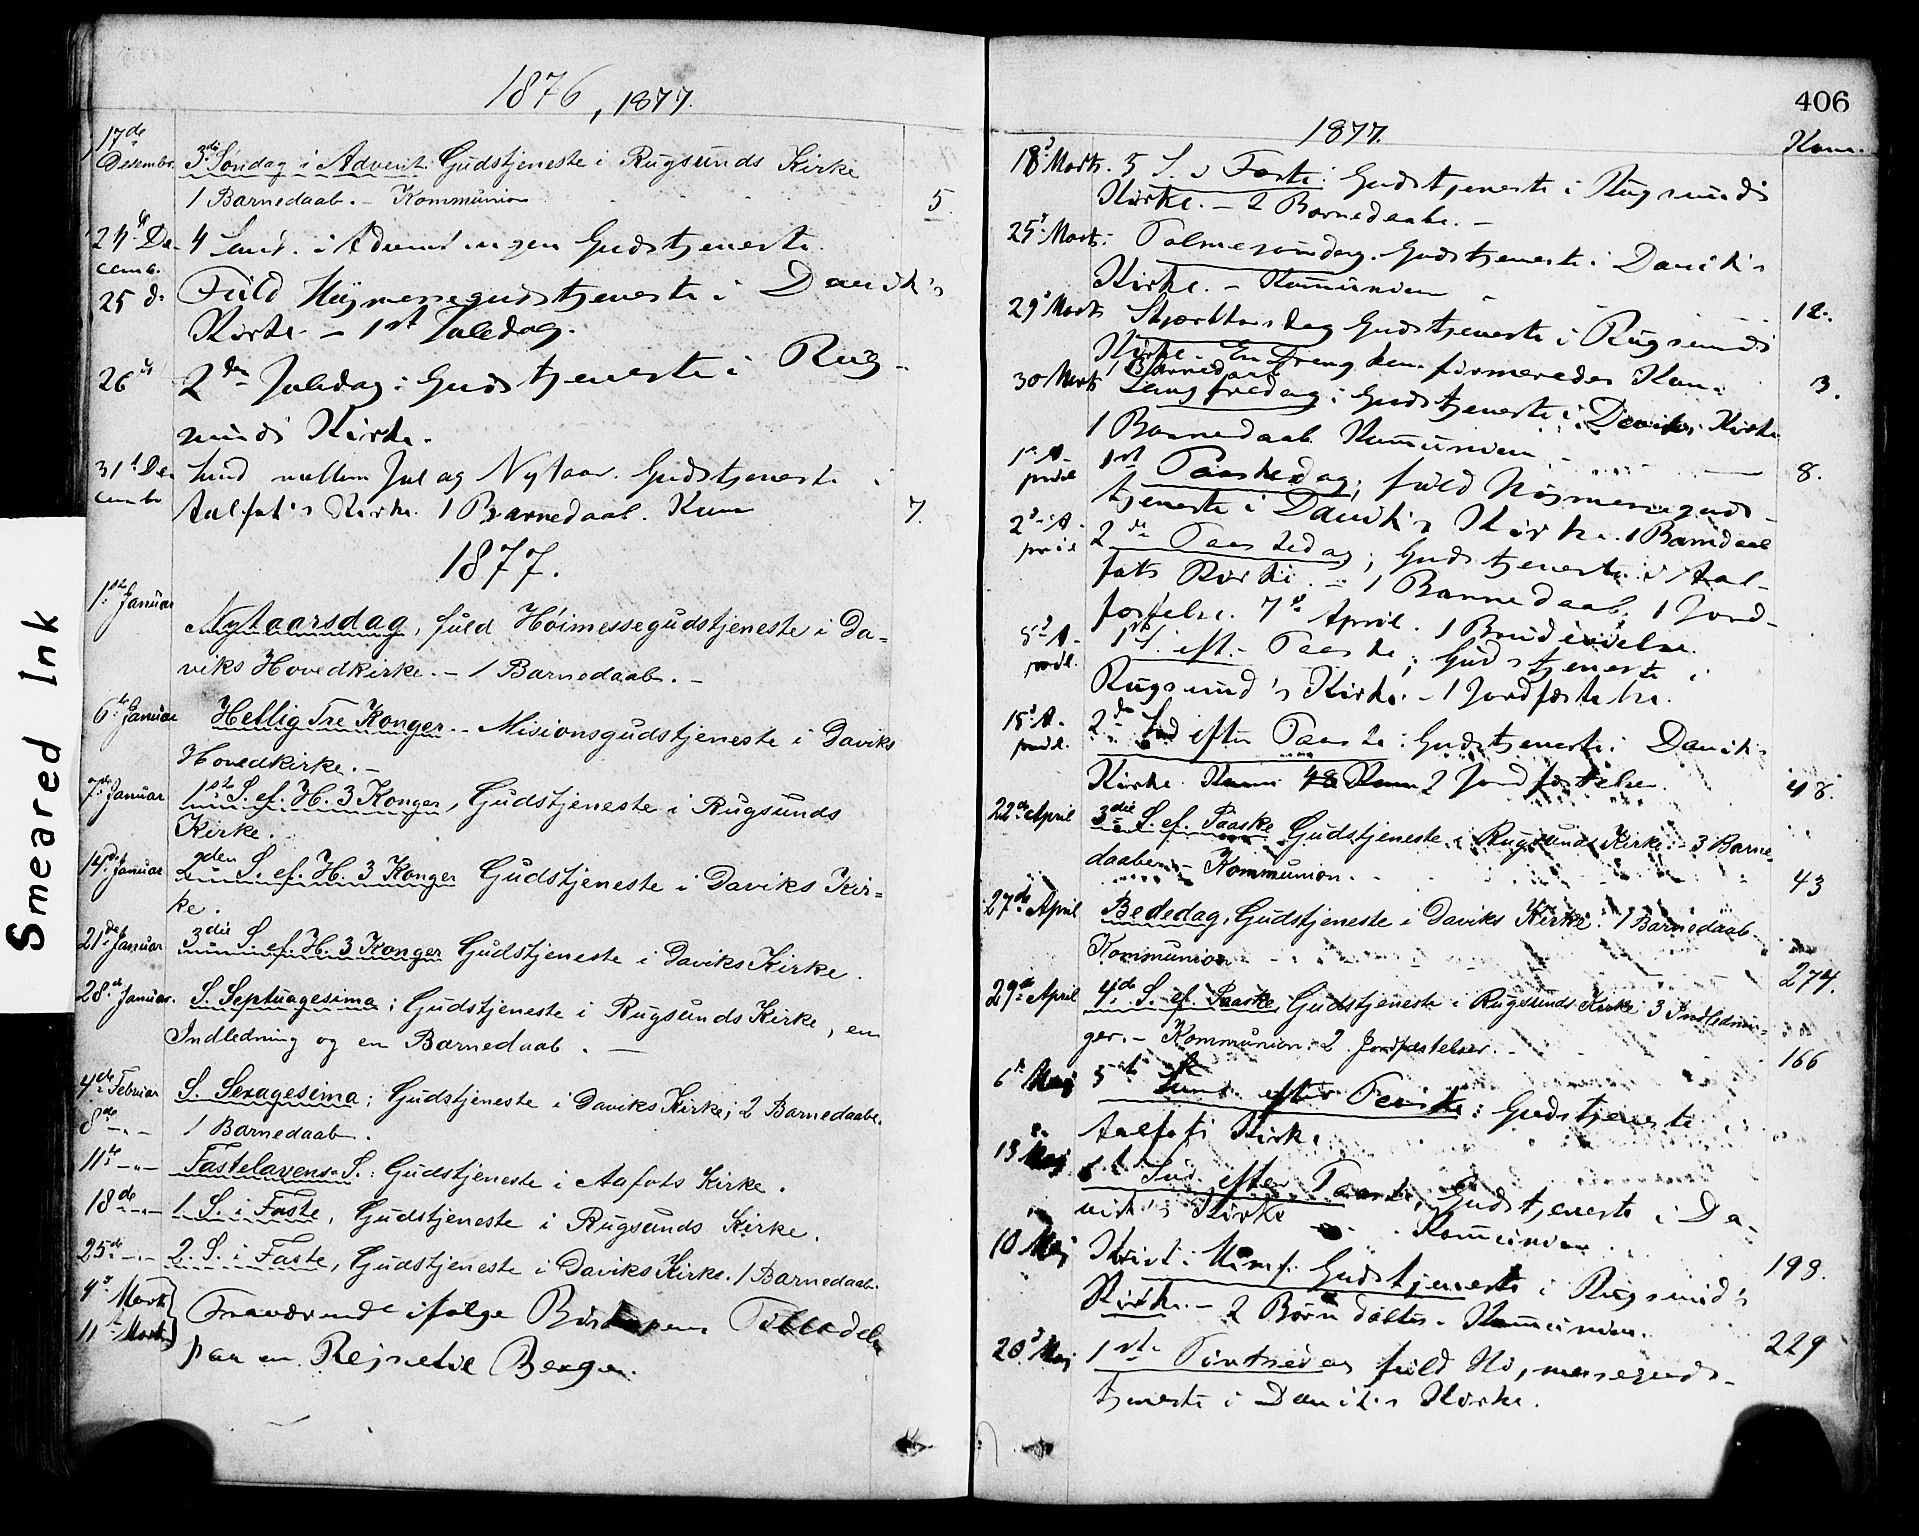 1876, 1877.
17de Desembr. 3die Søndag i Advent. Gudstjeneste i Rugsunds Kirke
1 Barnedaab. – Kommunion 5.
24de De- 4 Sønd. i Advent ingen Gudstjeneste.
cemb.
25 d. Fuld Høymessegudstjeneste i Davik's
Kirke – 1st Juledag.
26 2den Juledag: Gudstjeneste i Rug-
sunds Kirke.
31t De- Sønd mellem Jul og Nytaar. Gudstjeneste i
cembr Aalfot's Kirke. 1 Barnedaab. Kom 7.
1877.
1ste Januar
Nytaarsdag, fuld Høimessegudstjeneste i Da-
viks Hovedkirke. – 1 Barnedaab. –
6te Januar Hellig Tre Konger. – Misionsgudstjeneste i Daviks
Hovedkirke. –
7de Januar 1ste S. ef. H. 3 Konger, Gudstjeneste i Rugsunds
Kirke.
14de Januar 2den S. ef. H. 3 Konger Gudstjeneste i Daviks Kir=
ke.
21de Januar 3die S. ef. H. 3 Konger Gudstjeneste i Daviks Kirke.
28de Januar. S. Septuagesima; Gudstjeneste i Rugsunds Kirke, en
Indledning og en Barnedaab. –
4de Februar S. Sexagesima; Gudstjeneste i Daviks Kirke; 2 Barnedaabe.
8de –"– 1 Barnedaab.
11te –"– Fastelavens S.: Gudstjeneste i Aafots Kirke.
18de –"– 1 S. i Faste, Gudstjeneste i Rugsunds Kirke.
25de –"– 2. S. i Faste, Gudstjeneste i Daviks Kirke. 1 Barnedaab.
4d Marts Fraværende ifølge Biskopens Tilladelse
11t Marts paa en Rejse til Bergen.
Smeared Ink
406
1877.
Kom.
18d Marts. 5 S. i Faste: Gudstjeneste i Rugsunds
Kirke. – 2 Barnedaabe. –
25d Marts: Palmesøndag. Gudstjeneste i Davik's
Kirke. – Kommunion – 12.
29d Marts Skjærthorsdag Gudstjeneste i Rugsunds
Kirke. En Dreng konfirmeredes Kom. 3.
1 Barnedaab
30 Marts Langfredag: Gudstjeneste i Daviks Kirke
1 Barnedaab Kommunion. – 8.
1st A- 1st Paaskedag; fuld Højmessegud-
pril tjeneste i Davik's Kirke. 1 Barndaab
2d A- 2de Paaskedag; Gudstjeneste i Aal-
pril fots Kirke. – 1 Barnedaab; 1 Jord-
fæstelse. 7de April. 1 Brudevielse.
8d A- 1st S. eft. Paaske; Gudstjeneste i
pril. Rugsund's Kirke. – 1 Jordfæstelse.
15d A- 2den Sønd efter Paaske: Gudstjeneste i Davik's
pril. Kirke. Kom 48 Kom 2 Jordfæstelser. 48.
22de April 3die S. ef. Paaske Gudstjeneste i Rugsunds Kirke. – 3 Barne-
daaber – Kommunion. 43
27de April Bededag, Gudstjeneste i Daviks Kirke. 1 Barnedaab.
Kommunion – 274.
29de April 4de S. ef. Paaske, Gudstjeneste i Rugsunds Kirke 3 Indlednin-
ger. – Kommunion. 2 Jordfæstelser. – 166
6t Maj 5te Sønd. efter Paaske: Gudstjeneste i
Aalfots Kirke
13 Maj 6t Sønd. efter Paaske, Gudstjeneste i Da-
vik's Kirke Kommunion 198.
10 Maj Krist. Himf. Gudstjeneste i Rugsund's
Kirke. – 2 Børn døbtes. Kommunion. 229
20d Maj 1ste Pintsedag fuld Højmessegud-
tjeneste i Davik's Kirke.